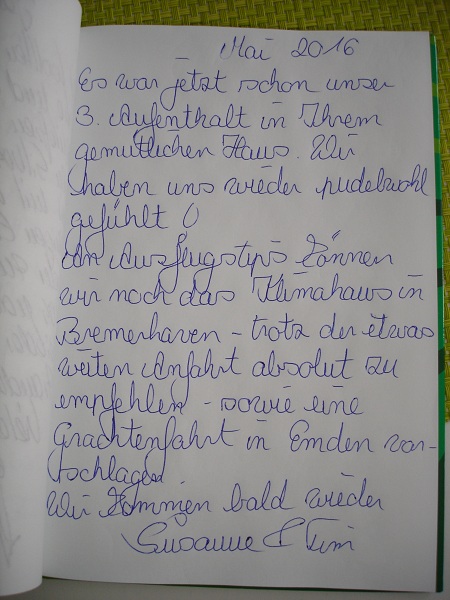 Mai 2016
Es war jetzt schon unser
3. Aufenthalt in Ihrem
gemütlichen Haus. Wir
haben uns wieder pudelwohl
gefühlt !
An Ausflugstips können
wir noch das Klimahaus in
Bremerhaven - trotz der etwas
weiten Anfahrt absolut zu
empfehlen - sowie eine
Grachtenfahrt in Emden vor-
schlagen.
Wir kommen bald wieder
Susanne & Tim